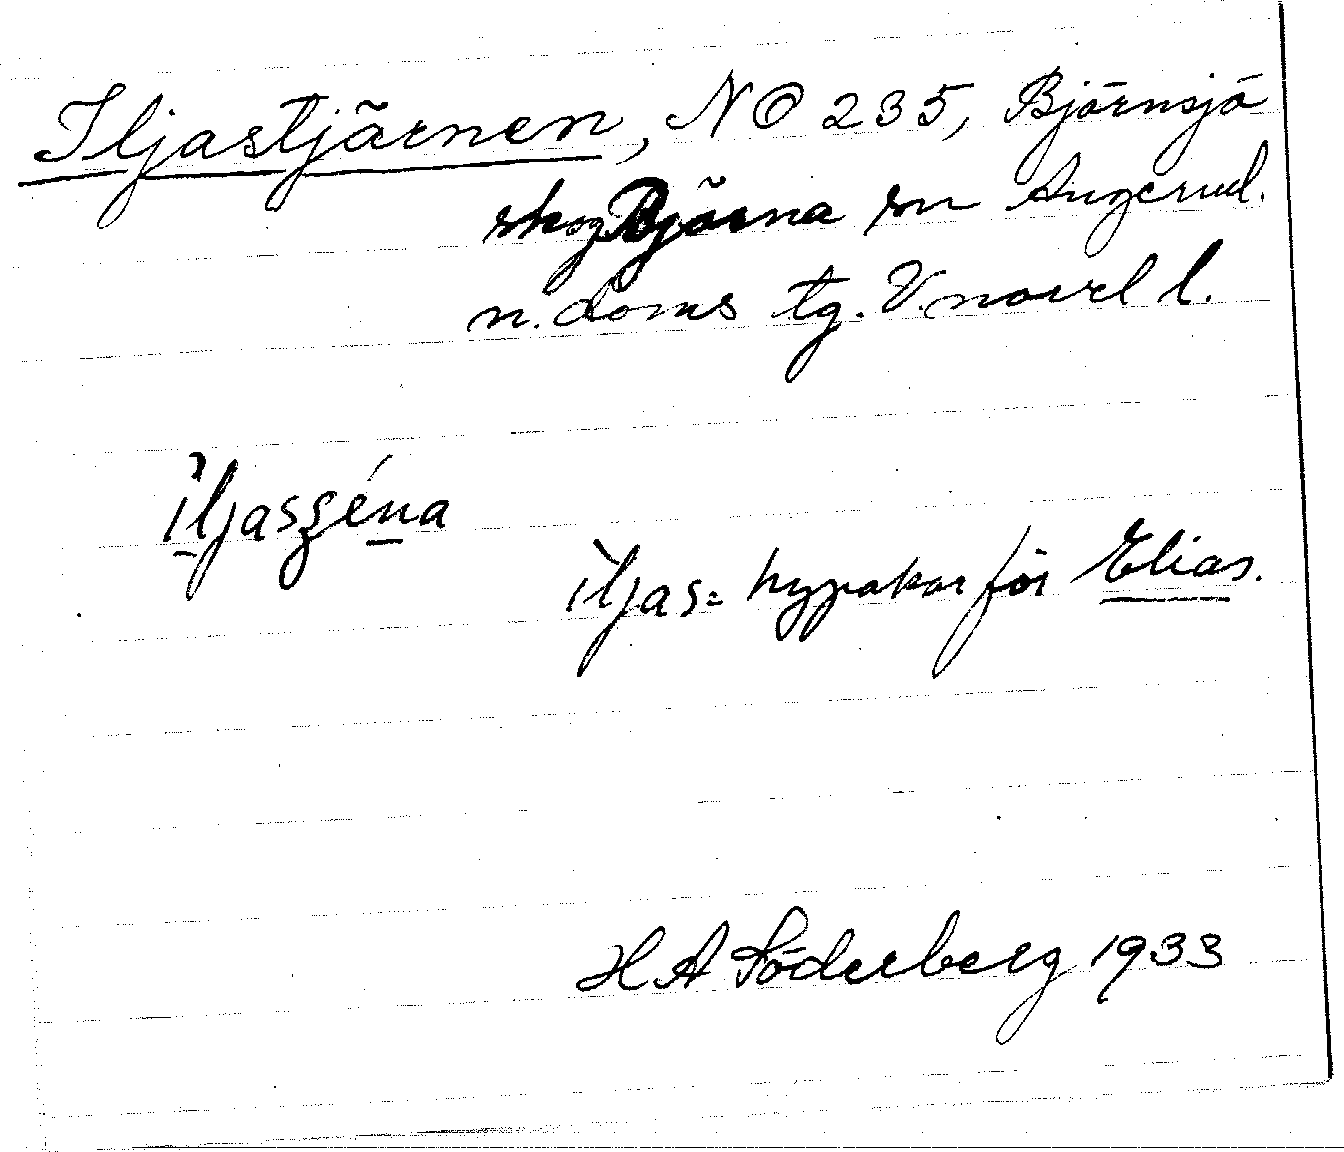 Iljastjärnen, NO 235, Björnsjö
skog Björna sn Ångerml.
n. doms tg. V.norrl l.
ìljasʒéna
ìljas = hypokor för Elias.
H A Söderberg 1933